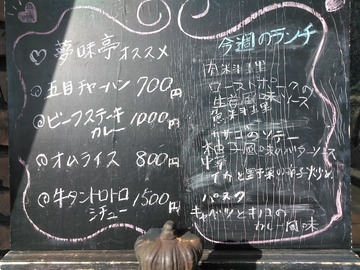 夢味亭オススメ
五目チャーハン 700円
ビーフステーキ
カレー 1000円
オムライス 800円
牛タントロトロ
シチュー 1500円
今週のランチ
肉料理
ローストポークの
生姜風味ソース
魚料理
カサゴのソテー
柚子風味のバターソース
中華
イカと野菜の辛子炒め
パスタ
キャベツとキノコの
カレー風味